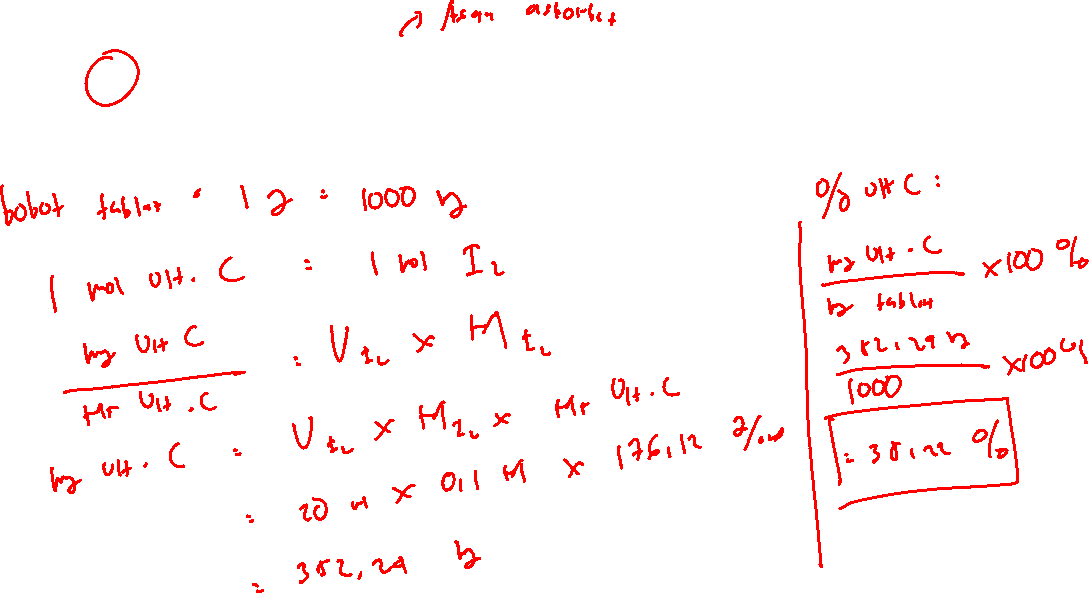 → Asam askorbat
bobot tablet = 1 g = 1000 mg
1 mol Vit. C = 1 mol I₂
mg Vit C / Mr Vit. C = V I₂ × M I₂
mg Vit. C = V I₂ × M I₂ × Mr Vit. C
= 20 ml × 0,1 M × 176,12 g/mol
= 352,24 mg
% Vit C :
mg Vit. C / mg tablet × 100 %
352,24 mg / 1000 × 100 %
= 35,22 %